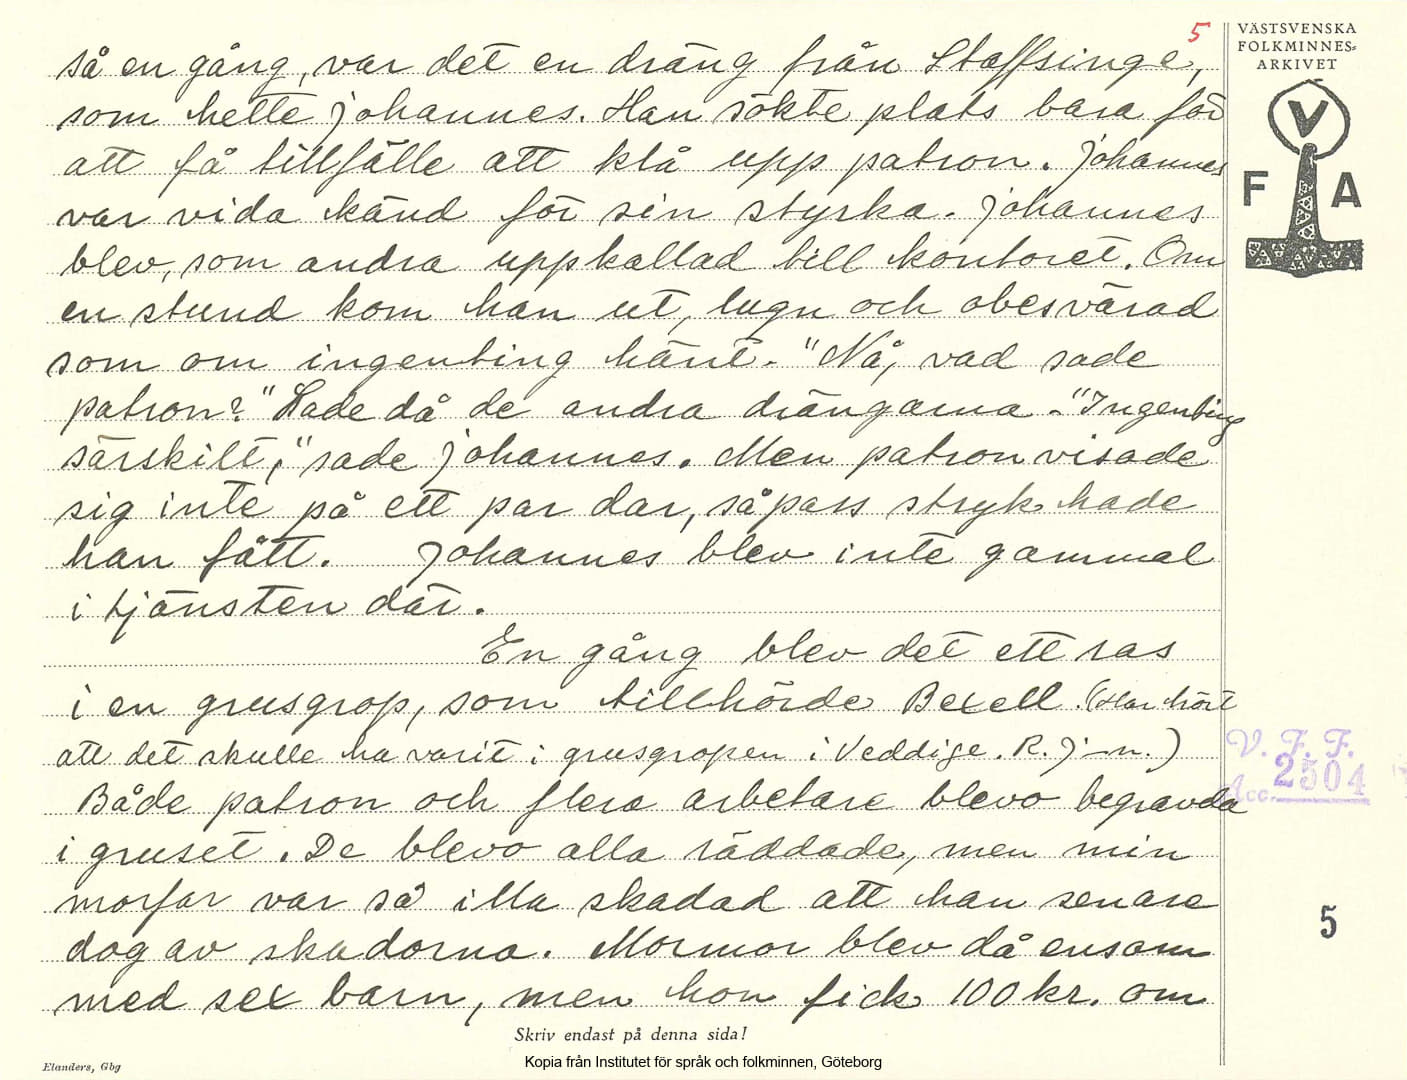 5
VÄSTSVENSKA
FOLKMINNES=
ARKIVET
V
F A
så en gång, var det en dräng från Staffsinge,
som hette Johannes. Han sökte plats bara för
att få tillfälle att klå upp patron. Johannes
var vida känd för sin styrka. Johannes
blev, som andra uppkallad till kontoret. Om
en stund kom han ut, lugn och obesvärad
som om ingenting hänt. "Nå, vad sade
patron?" Sade då de andra drängarna. "Ingenting
särskilt," sade Johannes. Men patron visade
sig inte på ett par dar, såpass stryk hade
han fått. Johannes blev inte gammal
i tjänsten där.
En gång blev det ett ras
i en grusgrop, som tillhörde Bexell. (Har hört
att det skulle ha varit i grusgropen i Veddige. R. J-n.)
Både patron och flera arbetare blevo begravda
i gruset. De blevo alla räddade, men min
morfar var så illa skadad att han senare
dog av skadorna. Mormor blev då ensam
med sex barn, men hon fick 100 kr. om
V. F. F.
Acc. 2504
5
Skriv endast på denna sida!
Elanders, Gbg
Kopia från Institutet för språk och folkminnen, Göteborg